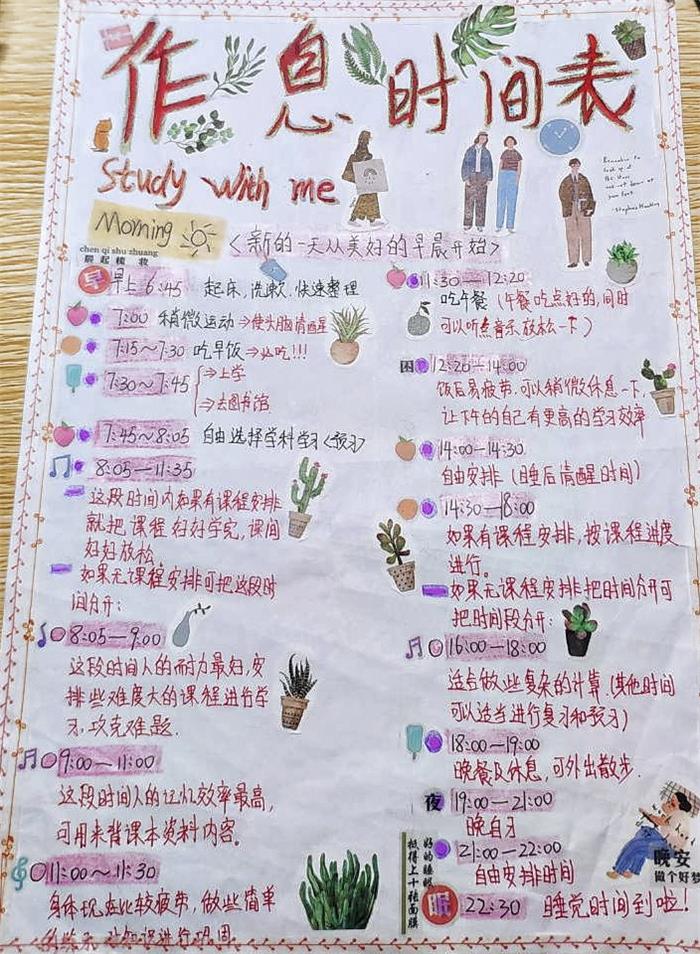 作息时间表
Study with me
Remember to
look up at
the stars
and not down at
your feet
-Stephen Hawking
Morning
<新的一天从美好的早晨开始>
chen qi shu zhuang
晨起梳妆
早 早上6:45 起床,洗漱.快速整理
7:00 稍微运动→使头脑清醒
7:15~7:30 吃早饭→必吃!!!
7:30~7:45 →上学
→去图书馆
7:45~8:05 自由选择学科学习<预习>
8:05—11:35
这段时间内如果有课程安排
就把课程好好学完,课间
好好放松
如果无课程安排可把这段时
间分开:
8:05—9:00
这段时间人的耐力最好,安
排些难度大的课程进行学
习,攻克难题.
9:00—11:00
这段时间人的记忆效率最高,
可用来背课本资料内容。
11:00~11:30
身体现在比较疲劳,做些简单
的练习
11:30—12:20
吃午餐(午餐吃点好的,同时
可以听点音乐放松一下)
困 12:20—14:00
饭后易疲劳.可以稍微休息一下,
让下午的自己有更高的学习效率
14:00—14:30
自由安排(睡后清醒时间)
14:30—18:00
如果有课程安排,按课程进度
进行。
如果无课程安排把时间分开可
把时间段分开:
16:00—18:00
适合做些复杂的计算.(其他时间
可以适当进行复习和预习)
18:00—19:00
晚餐及休息,可外出散步.
夜 19:00—21:00
晚自习
21:00—22:00
自由安排时间
眠 22:30 睡觉时间到啦!
好的睡眠
抵得上十张面膜
晚安
做个好梦